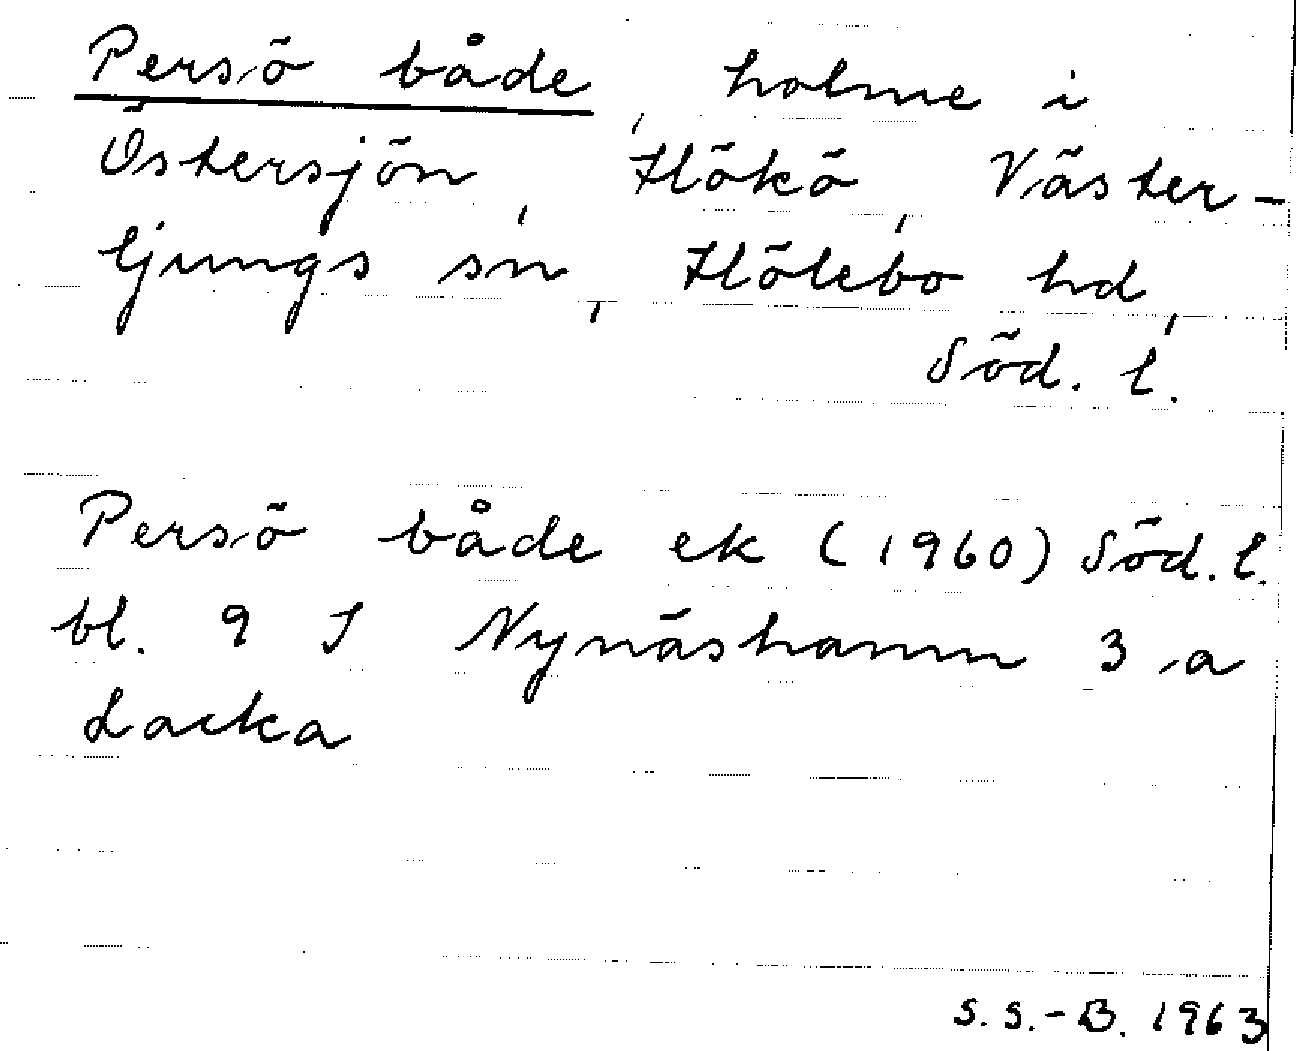 Persö både, holme i
Östersjön, Hökö, Väster-
ljungs sn, Hölebo hd,
Söd. l.
Persö både ek (1960) Söd. l.
bl. 9 I Nynäshamn 3 a
Lacka
S. S.-B. 1963